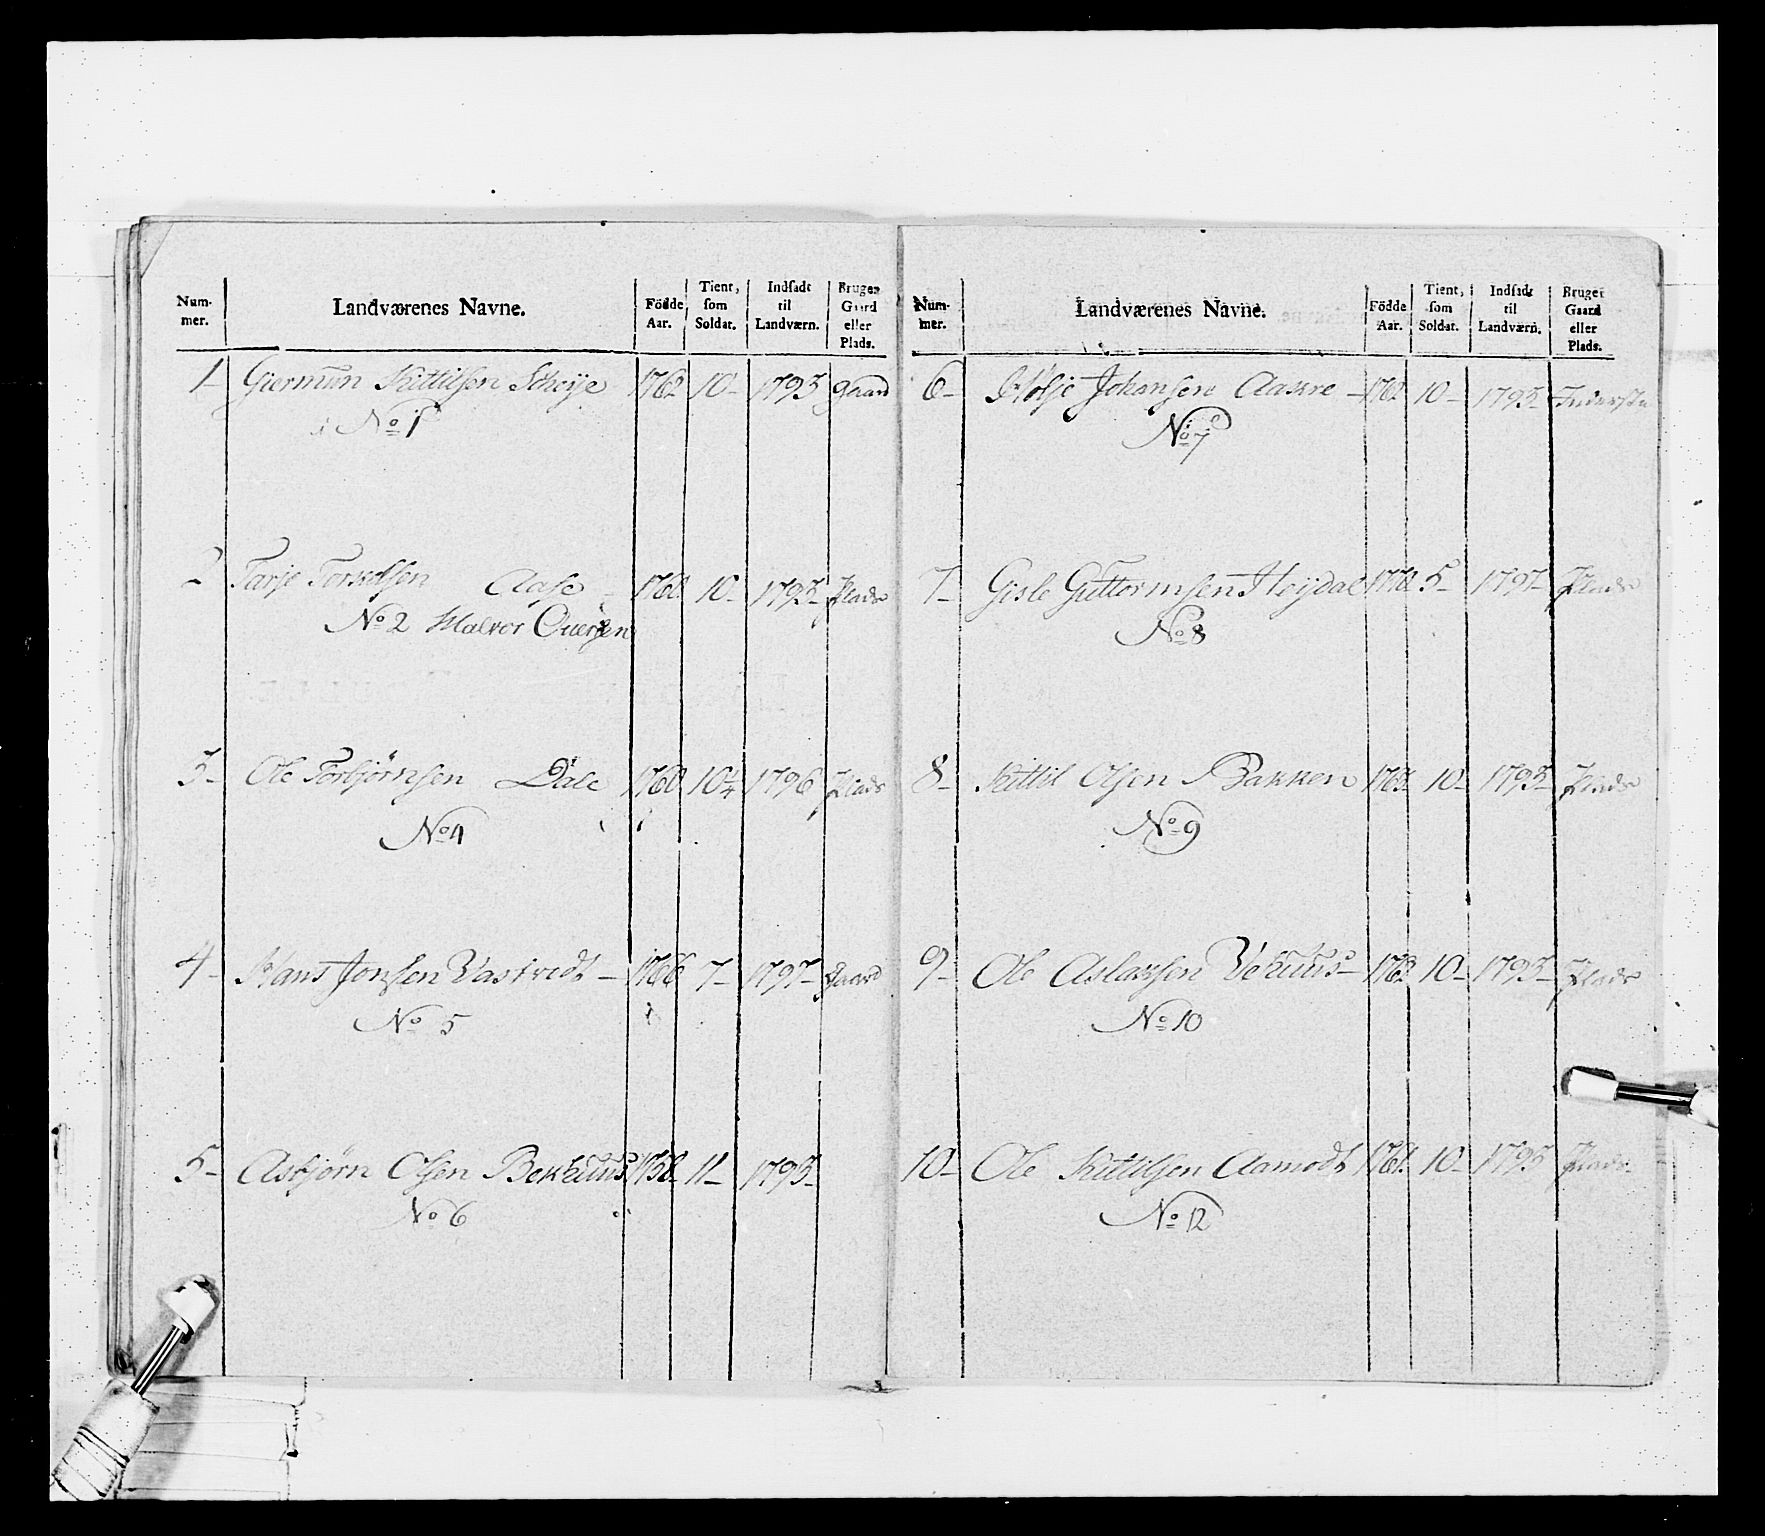 Num-
mer.
Landværenes Navne.
Födde
Aar.
Tient,
som
Soldat.
Indsadt
til
Landværn.
Bruger
Gaard
eller
Plads.
1 Giermun Kittilsen 1762 10 1793 Gaard
No 1
2 Tarje Aase 1760 10 1793 Plads
No 2 Halvor
3 Ole Torbjörnsen Dale 1760 10¼ 1796 Plads
No 4
4 Hans Jonsen 1766 7 1797 Gaard
No 5
5 Asbjørn Olsen Bekhuus 1758 11 1793
No 6
Num-
mer.
Landværenes Navne.
Födde
Aar.
Tient,
som
Soldat.
Indsadt
til
Landværn.
Bruger
Gaard
eller
Plads.
6 Johansen Aakre 10 1793
No 7
7 Gisle Guttormsen Höydal 1770 5 1797 Plads
No 8
8 Kittil Olsen Bakken 10 1793 Plads
No 9
9 Ole Aslaksen 10 1793 Plads
No 10
10 Ole Kittilsen Aamodt 1761 10 1793 Plads
No 12